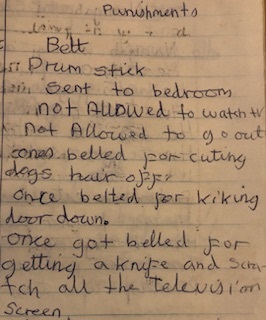 Punishments
Belt
Drum stick
sent to bedroom
not ALLOWED to watch tv
Not Allowed to go out
belled for cuting
dogs hair off
once belted for kiking
door down.
once got belled for
getting a knife and scra
tch all the televisiom
screen